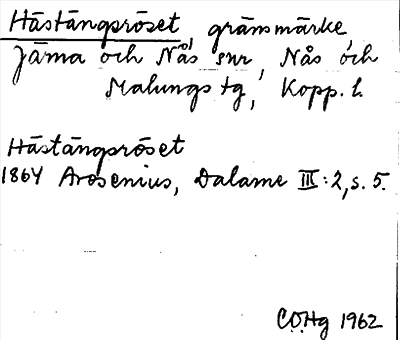 Hästängsröset, gränsmärke,
Järna och Nås snr, Nås och
Malungs tg, Kopp. l.
Hästängsröset
1864 Arosenius, Dalarne III:2, s. 5.
C.O.Hg 1962